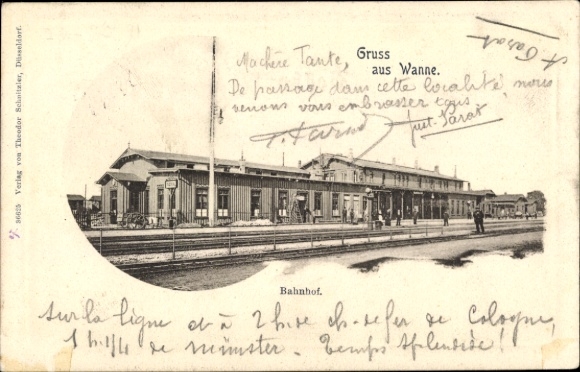 Gruss
aus Wanne.
Machère Tante,
De passage dans cette localité, nous
venons vous embrasser tous
Just. Parat
Bahnhof.
sur la ligne et à 2 h. de ch. de fer de Cologne,
1 h. 1/4 de münster. Temps splendide!
36625 Verlag von Theodor Scholtzler, Düsseldorf.